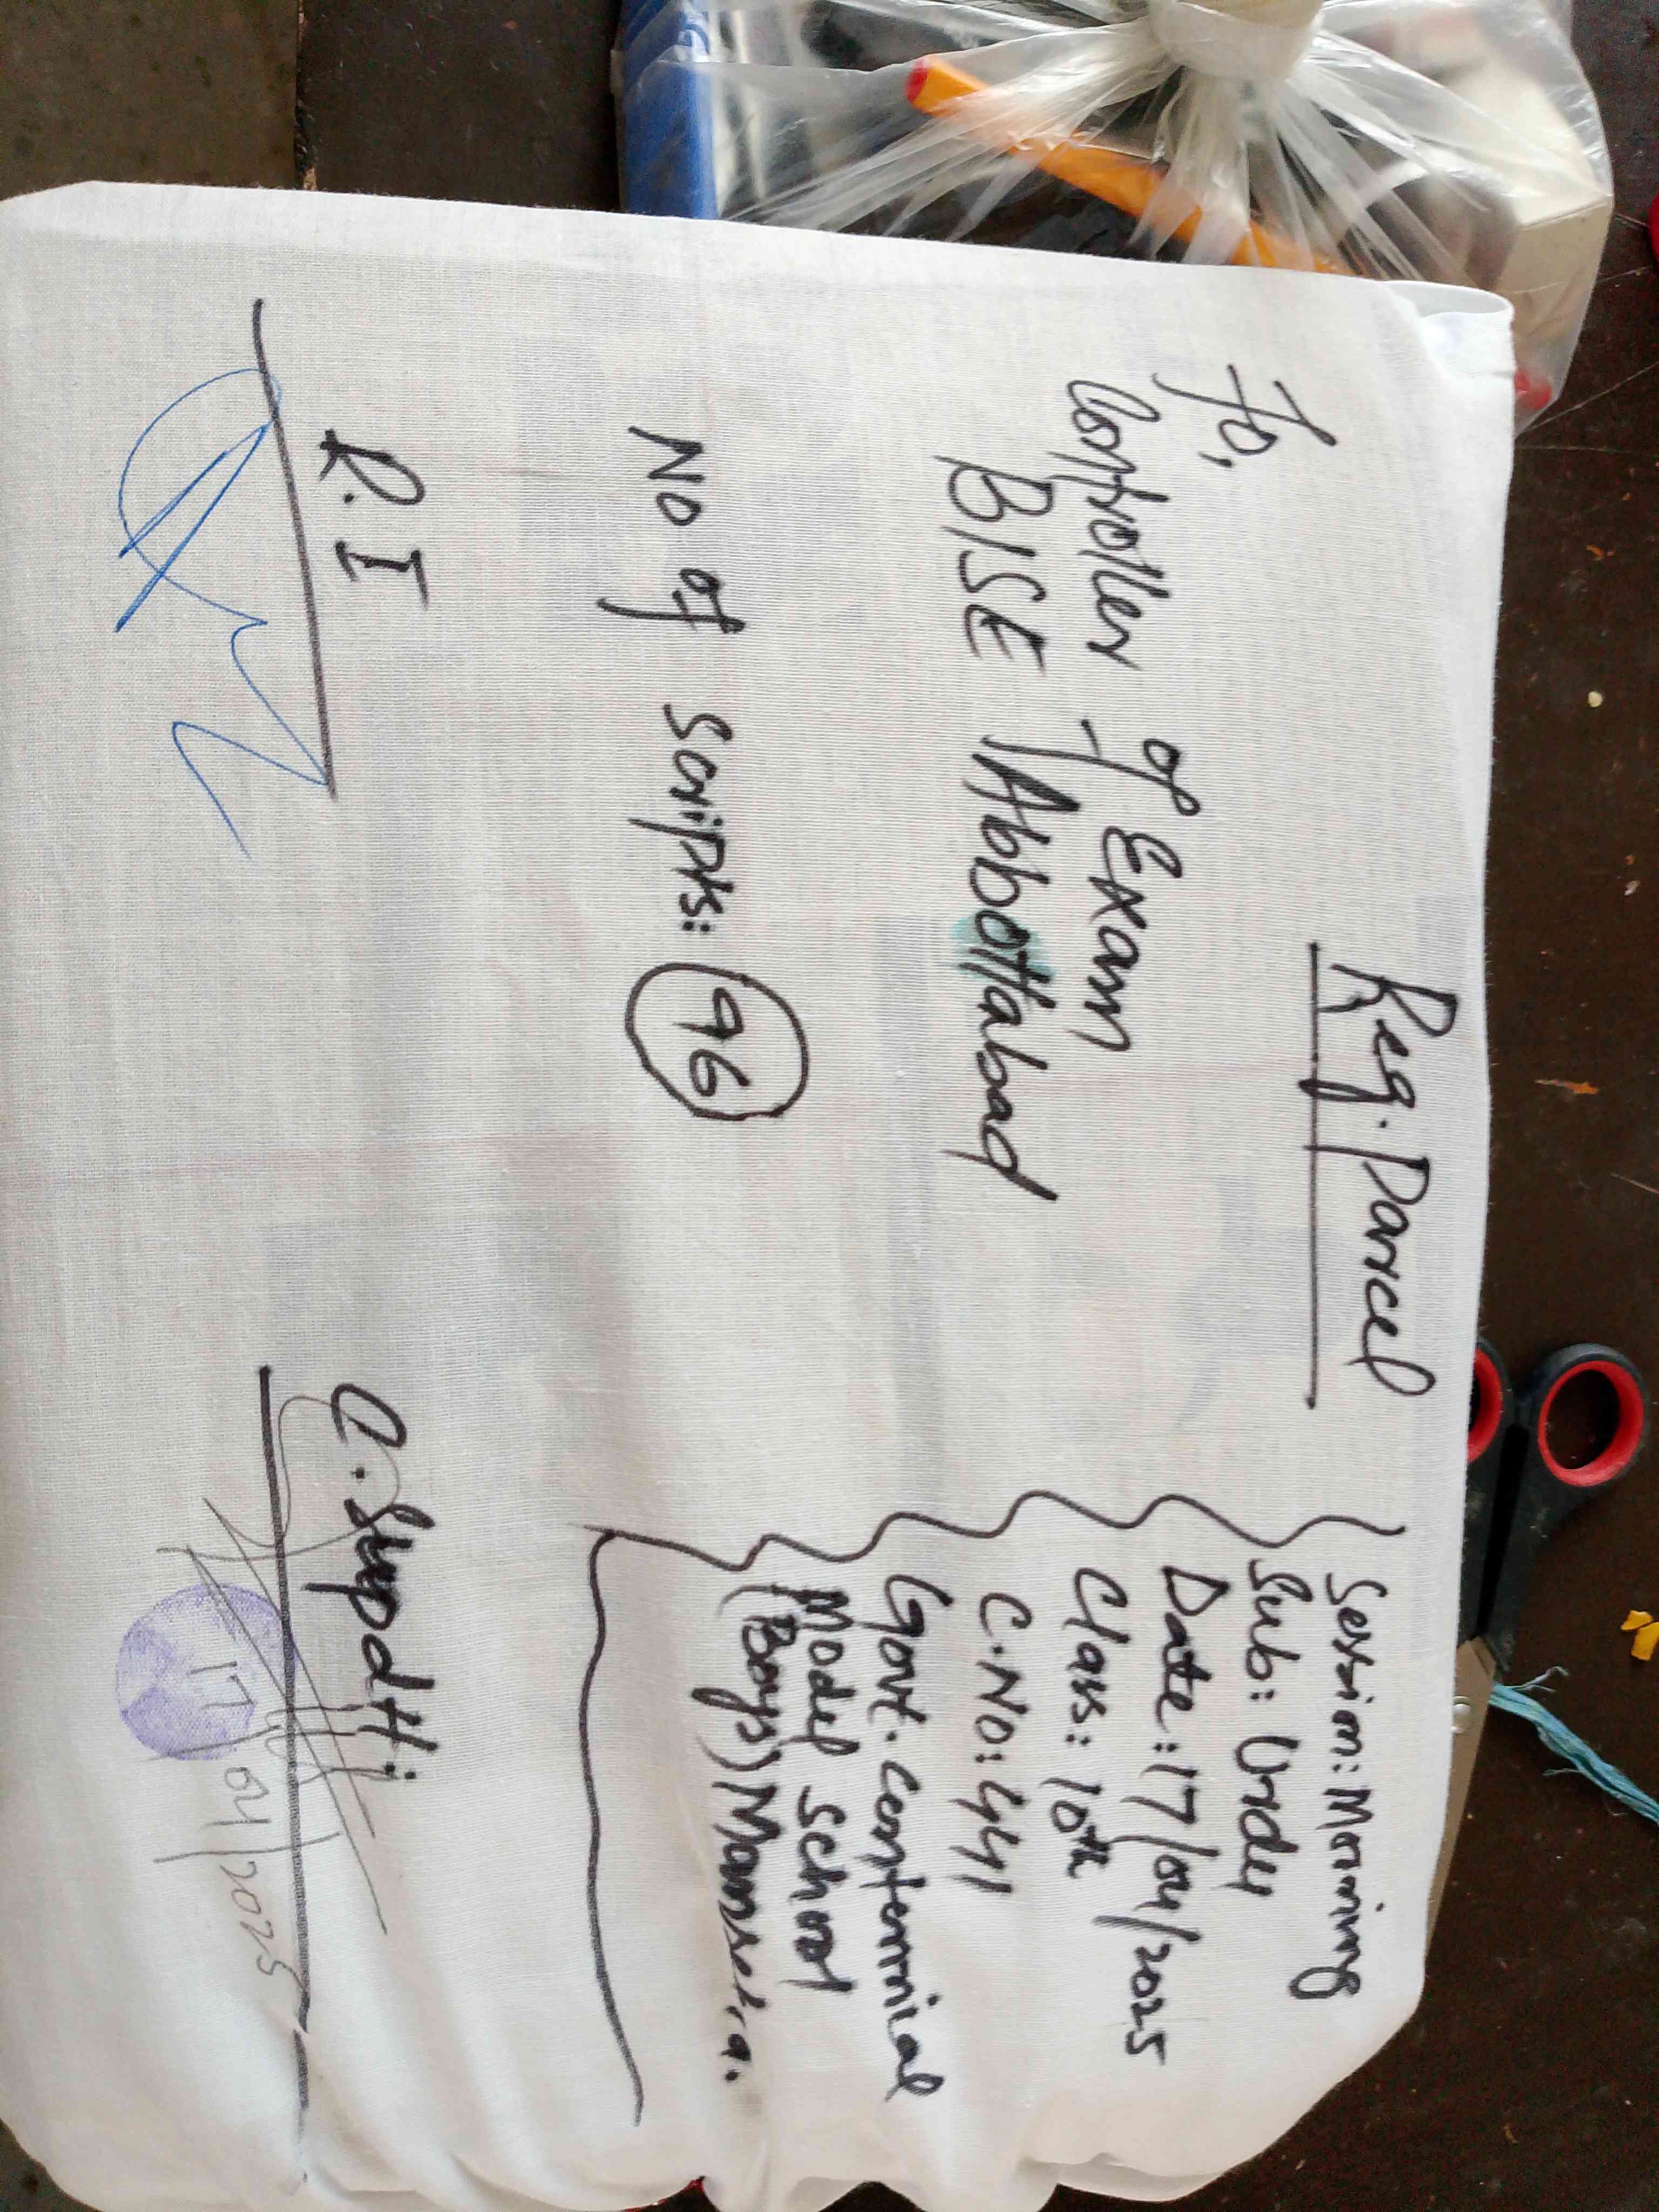 Reg. Parcel
To,
Controller of Exam
BISE Abbottabad
No of Scripts: 96
Session: Morning
Sub: Urdu
Date: 17/04/2025
Class: 10th
C.NO: 441
Govt. Centennial
Model School
(Boys) Mansehra.
R.I
D.Supdtt:
17/04/2025